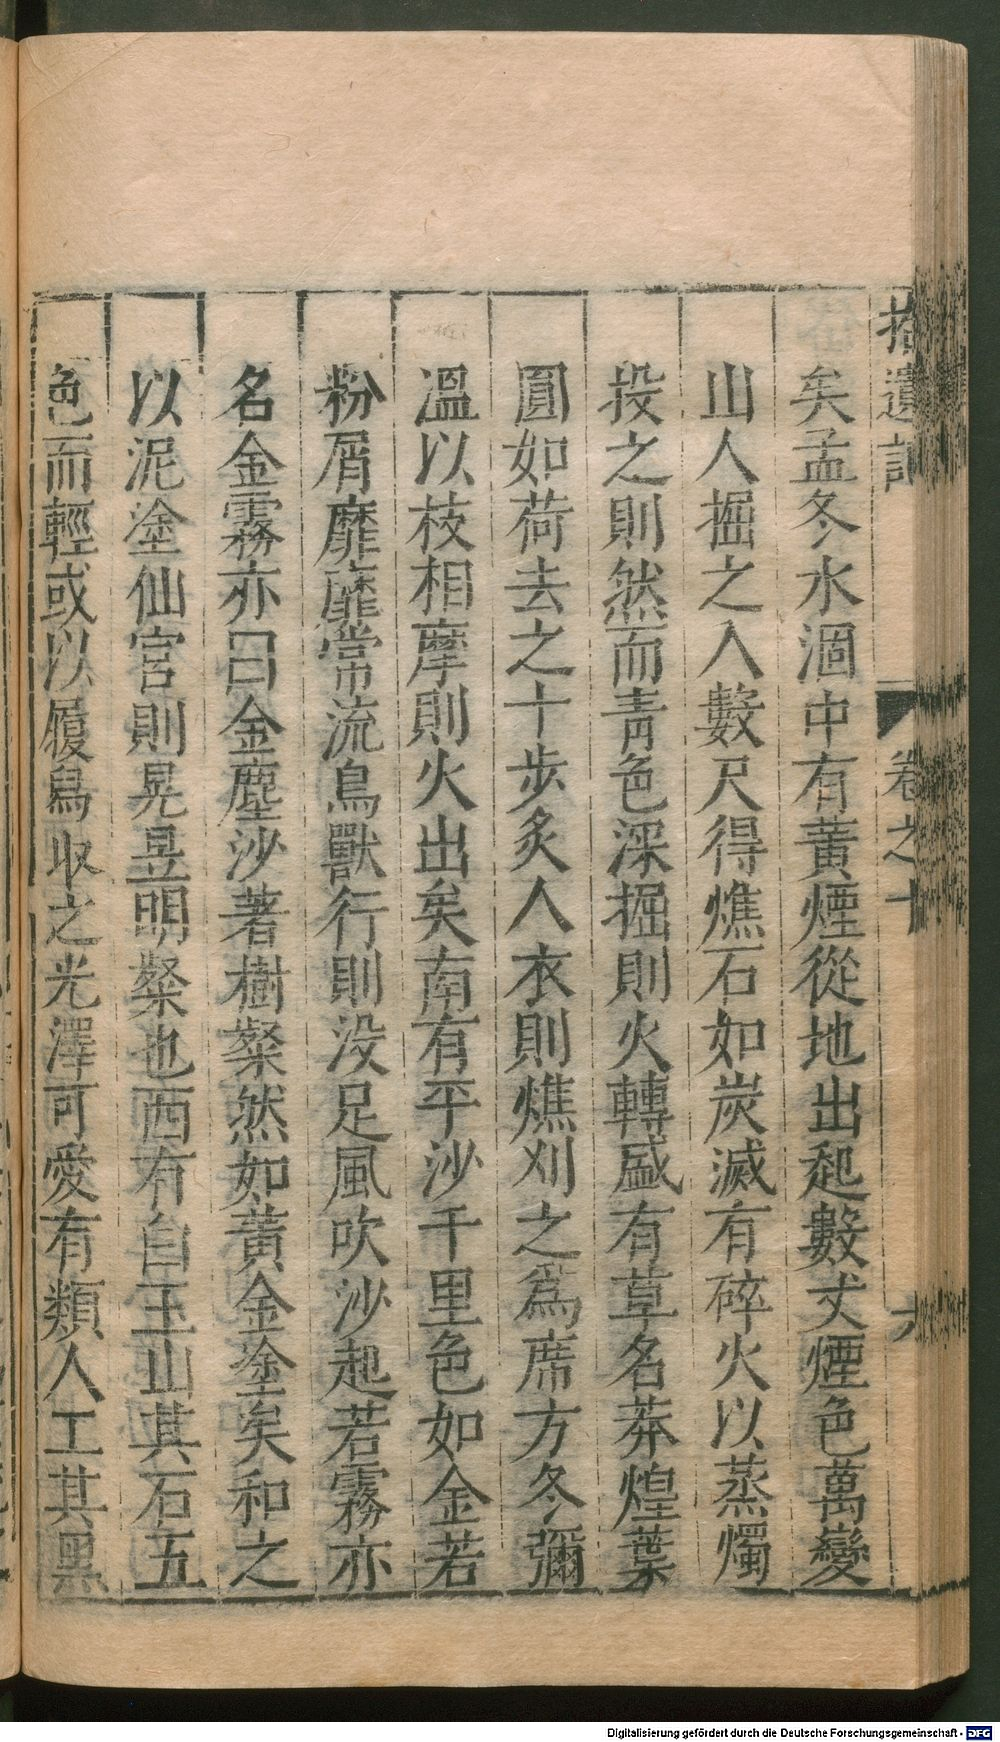 拾遺記
卷之十
六
矣孟冬水涸中有黃煙從地出起數丈煙色萬變
山人掘之入數尺得燋石如炭滅有碎火以蒸燭
投之則然而青色深掘則火轉盛有草名莽煌葉
圓如荷去之十步炙人衣則燋刈之為席方冬彌
溫以枝相摩則火出矣南有平沙千里色如金若
粉屑靡靡常流鳥獸行則沒足風吹沙起若霧亦
名金霧亦曰金塵沙著樹粲然如黃金塗矣和之
以泥塗仙宮則晃昱明粲也西有白玉山其石五
色而輕或以履舄取之光澤可愛有類人工其黑
Digitalisierung gefördert durch die Deutsche Forschungsgemeinschaft - DFG